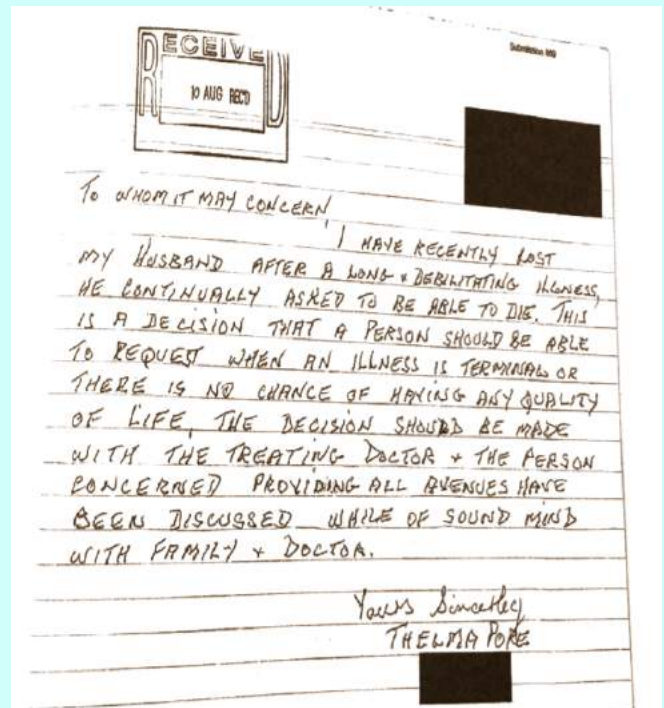 RECEIVED
10 AUG REC'D
To WHOM IT MAY CONCERN,
I HAVE RECENTLY LOST
MY HUSBAND AFTER A LONG + DEBILITATING ILLNESS,
HE CONTINUALLY ASKED TO BE ABLE TO DIE. THIS
IS A DECISION THAT A PERSON SHOULD BE ABLE
TO REQUEST WHEN AN ILLNESS IS TERMINAL OR
THERE IS NO CHANCE OF HAVING ANY QUALITY
OF LIFE, THE DECISION SHOULD BE MADE
WITH THE TREATING DOCTOR + THE PERSON
CONCERNED PROVIDING ALL AVENUES HAVE
BEEN DISCUSSED WHILE OF SOUND MIND
WITH FAMILY + DOCTOR.
Yours Sincerely
THELMA POPE